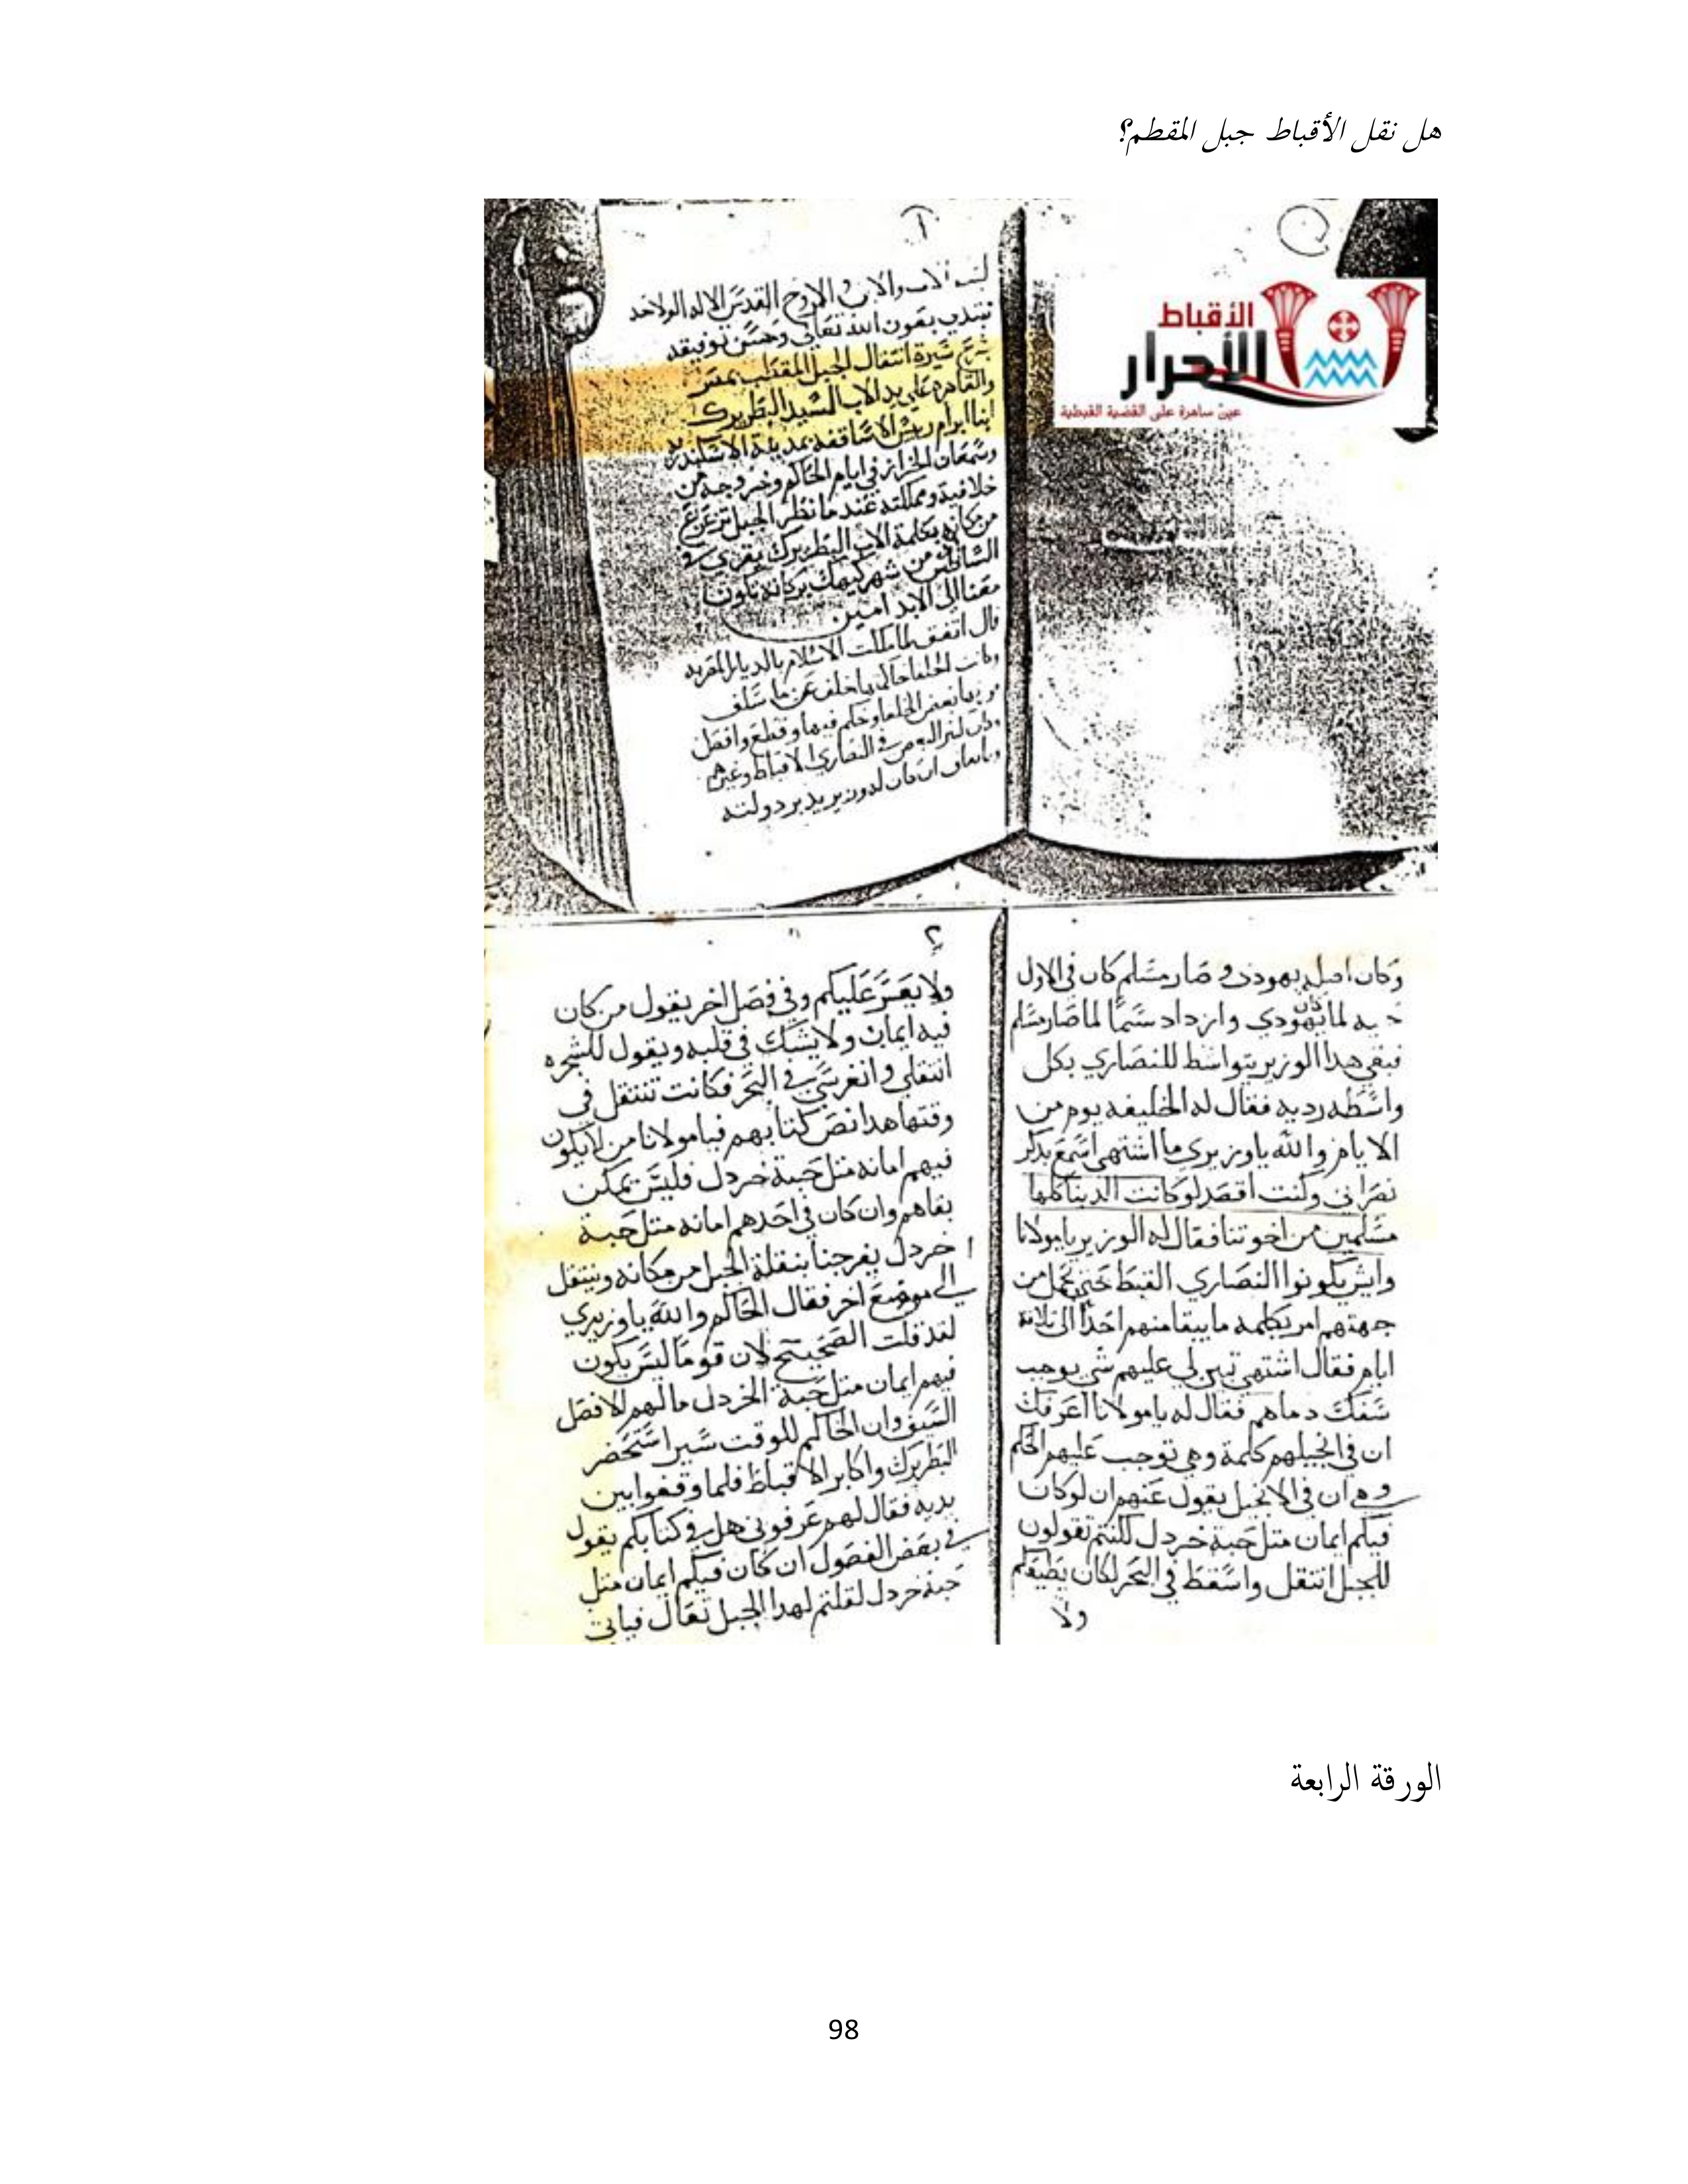 هل نقل الأقباط جبل المقطم؟
الأقباط
الأحرار
عين ساهرة على القضية القبطية
١
الاب والابن والروح القدس الاله الواحد
نبتدي بعون الله تعالى وحسن توفيقه
سيرة انتقال الجبل المقطب بمصر
والقاهرة على يد الاب السيد البطريرك
انبا ابرام ريس الاساقفه بمدينة الاسكندريه
وسمعان الخراز في ايام الحاكم وخروجه من
خلافته ومملكته عند ما نظر الجبل تزعزع
من مكانه بكلمة الاب البطريرك
من شهر كيهك بركاته تكون
معنا الى الابد امين
قال اتفق لما ملكت الاسلام بالديار المصريه
وكانت الخلفا
بعض الخلفا وحكم فيها وقطع وافصل
في النصاري الاقباط وغيرهم
وزير يدبر دولته
وكان اصله يهودي وصار مسلم كان في الاول
لما يهودي وازداد سما لما صار مسلم
فبقي هدا الوزير يتواسط للنصاري بكل
واسطه رديه فقال له الخليفه يوم من
الايام والله ياوزيري ما اشتهي اسمع بدكر
نصراني وكنت اقصد لو كانت الدينا كلها
مسلمين من اخوتنا فقال له الوزير يامولانا
وايش يكونوا النصاري القبط حتى تحمل من
جهتهم امر بكلمه مايبقا منهم احدا الى تلاتة
ايام فقال اشتهي تبين لي عليهم شي يوجب
سفك دماهم فقال له يامولانا اعرفك
ان في انجيلهم كلمة وهي توجب عليهم الحكم
وهي ان في الانجيل يقول عنهم ان لو كان
فيكم ايمان متل حبة خردل لكنتم تقولون
للجبل انتقل واسقط في البحر لكان يطيعكم
ولا
٢
ولا يعسر عليكم وفي فصل اخر يقول من كان
فيه ايمان ولا يشك في قلبه ويقول للشجره
انتقلي وانغرسي في البحر فكانت تنتقل في
وقتها هدا نص كتابهم فيامولانا من لايكون
فيهم امانه متل حبة خردل فليس يمكن
بقاهم وان كان في احدهم امانه متل حبة
خردل يفرجنا بنقلة الجبل من مكانه وينتقل
الي موضع اخر فقال الحاكم والله ياوزيري
لقد قلت الصحيح لان قوما ليس يكون
فيهم ايمان متل حبة الخردل مالهم الا فصل
السيف وان الحاكم للوقت سير استحضر
البطريرك واكابر الاقباط فلما وقفوا بين
يديه فقال لهم عرفوني هل في كتابكم يقول
في بعض الفصول ان كان فيكم ايمان متل
حبة خردل لقلتم لهدا الجبل تعال فياتي
الورقة الرابعة
98